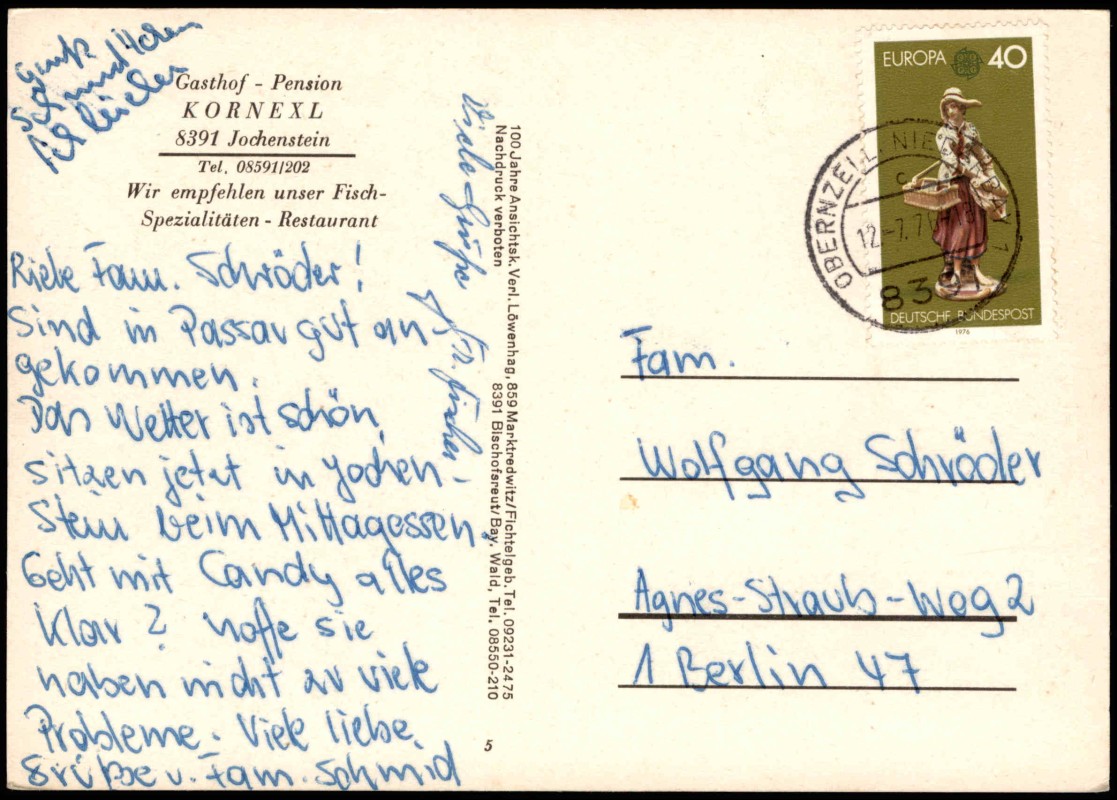 Gasthof - Pension
KORNEXL
8391 Jochenstein
Tel. 08591/202
Wir empfehlen unser Fisch-
Spezialitäten - Restaurant
Liebe Fam. Schröder!
Sind in Passau gut an-
gekommen.
Das Wetter ist schön,
sitzen jetzt in Jochen-
stein beim Mittagessen.
Geht mit Candy alles
klar? hoffe sie
haben nicht zu viele
Probleme. Viele liebe
Grüße v. Fam. Schmid
Viele Grüße
Fischer
100 Jahre Ansichtsk. Verl. Löwenhag, 859 Marktredwitz/Fichtelgeb. Tel. 09231-2475
Nachdruck verboten
8391 Bischofsreut/Bay. Wald, Tel. 08550-210
5
EUROPA 40
DEUTSCHE BUNDESPOST
1976
OBERNZELL, NIEDERBAY 1
c
12.-7.7
839
Fam.
Wolfgang Schröder
Agnes-Straub-Weg 2
1 Berlin 47